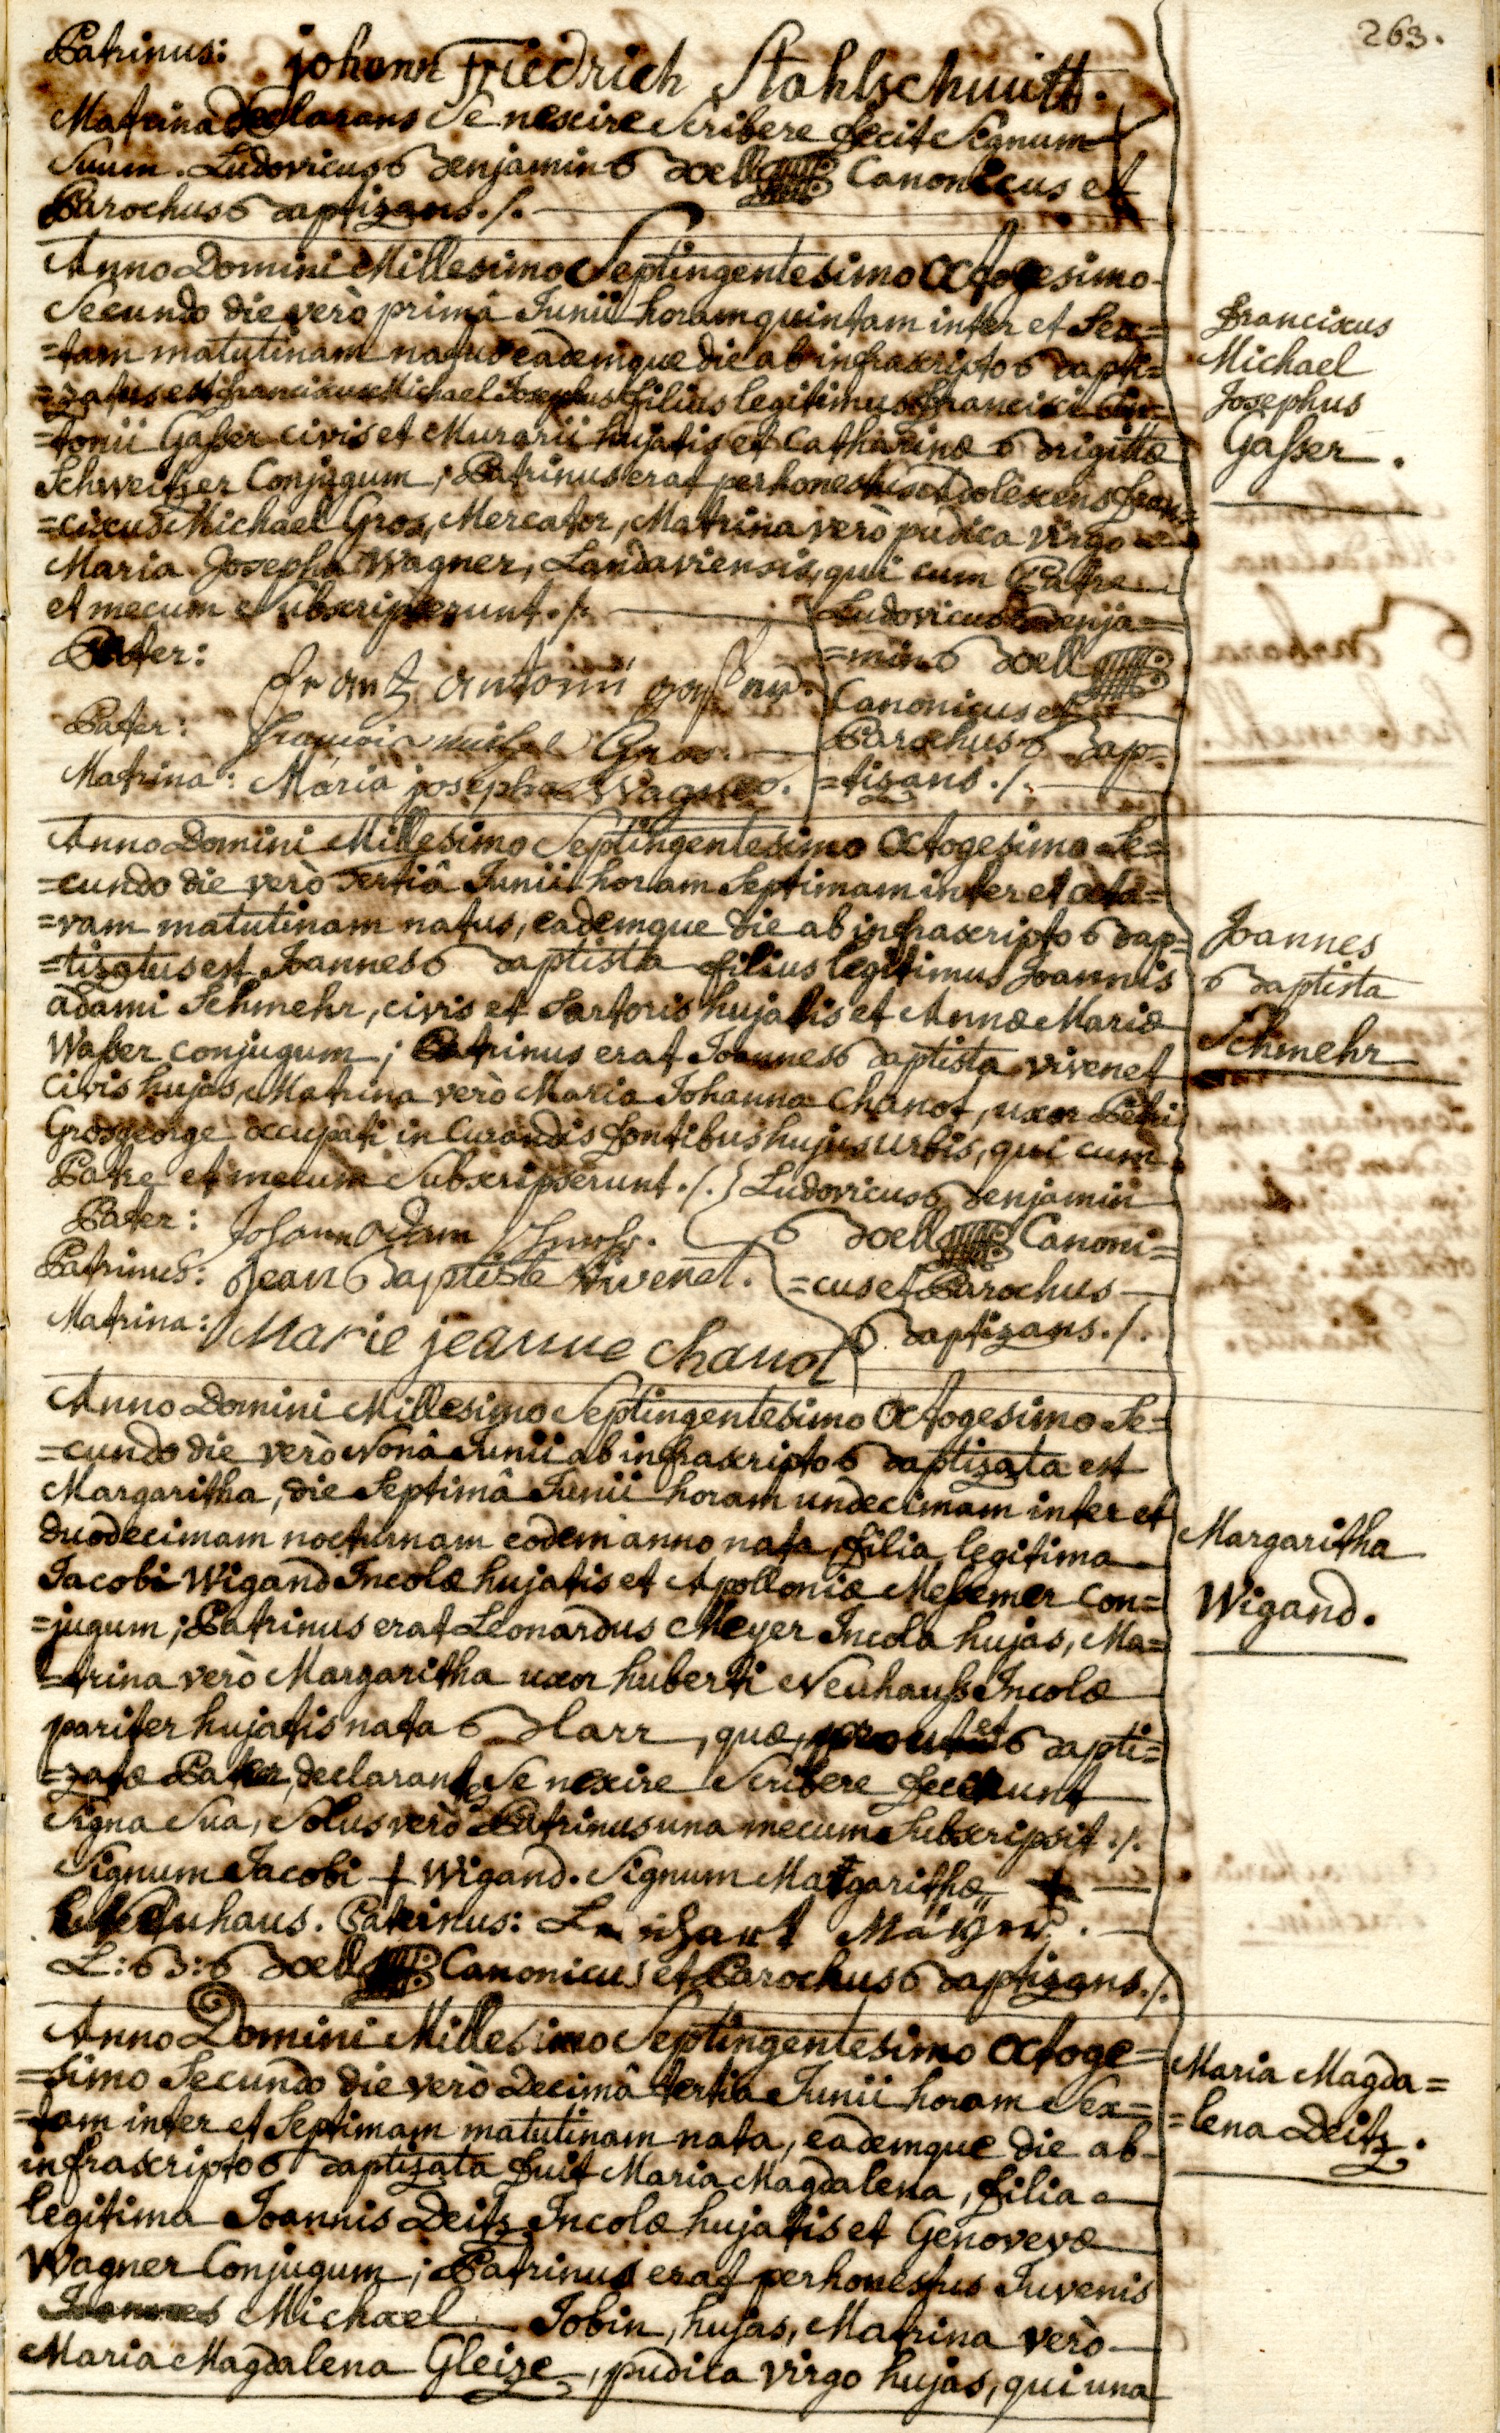 263.
Patrinus: johann Friedrich Stahlschmitt.
Matrina declarans Se nescire Scribere fecit Signum
Suum. Ludovicus Benjamin Boell Canonicus et
Parochus Baptizans./.
Anno Domini Millesimo Septingentesimo Octogesimo
Secundo die verò primâ Junii horam quintam inter et Sex=
=tam matutinam natus eademque die ab infrascripto Bapti=
=zatus est franciscus Michael Josephus filius legitimus francisci An=
=tonii Gaßer civis et Murarii hujatis et Catharinæ Brigittæ
Schweitzer Conjugum; Patrinus erat perhonestus Adolescens fran=
=ciscus Michael Gros, Mercator, Matrina verò pudica virgo
Maria Josepha Wagner, Landaviensis, qui cum Patre
et mecum Subscripserunt./.
Pater: frantz antonii gaßner.
Pater: francois michel Gros.
Matrina: Maria josepha Wagner.
Ludovicus Benja=
=min Boell
Canonicus et
Parochus Bap=
=tizans./.
Franciscus
Michael
Josephus
Gaßser.
Anno Domini Millesimo Septingentesimo Octogesimo Se=
=cundo die verò Tertiâ Junii horam Septimam inter et octa=
=vam matutinam natus, eademque die ab infrascripto Bap=
=tizatus est Joannes Baptista filius legitimus Joannis
adami Schmehr, civis et Sartoris hujatis et Annæ Mariæ
Waßer conjugum; Patrinus erat Joannes Baptista vivenet
Civis hujas, Matrina verò Maria Johanna Chanot, uxor Petri
Grosgeorge occupati in Curandis fontibus hujus urbis, qui cum
Patre et mecum Subscripserunt./. Ludovicus Benjamin
Pater: Johann Adam Schmehr. Boell Canoni=
Patrinus: Jean Baptiste Vivenet. =cus et Parochus
Matrina: Marie jeanne chanot Baptizans./.
Joannes
Baptista
Schmehr
Anno Domini Millesimo Septingentesimo Octogesimo Se=
=cundo die verò Nonâ Junii ab infrascripto Baptizata est
Margaritha, die Septimâ Junii horam undecimam inter et
duodecimam nocturnam eodem anno nata, filia legitima
Jacobi Wigand Incolæ hujatis et Apolloniæ Meßemer Con=
=jugum; Patrinus erat Leonardus Meyer Incola hujas, Ma=
=trina verò Margaritha uxor huberti Neuhauß Incolæ
pariter hujatis nata Blarr, quæ, prout et Bapti=
=zatæ Pater, declarant Se nescire Scribere fecerunt
Signa Sua, Solus verò Patrinus una mecum Subscripsit./.
Signum Jacobi + Wigand. Signum Margarithæ +
Neuhaus. Patrinus: Lenhart Mäÿer.
L: B: Boell Canonicus et Parochus Baptizans./.
Margaritha
Wigand.
Anno Domini Millesimo Septingentesimo Octoge=
=simo Secundo die verò Decimâ tertia Junii horam Sex=
=tam inter et Septimam matutinam nata, eademque die ab
infrascripto Baptizata fuit Maria Magdalena, filia
legitima Joannis Deitz Incolæ hujatis et Genovevæ
Wagner Conjugum; Patrinus erat perhonestus Juvenis
Joannes Michael Jobin, hujas, Matrina verò
Maria Magdalena Gleize, pudica virgo hujas, qui una
Maria Magda=
=lena Deitz.